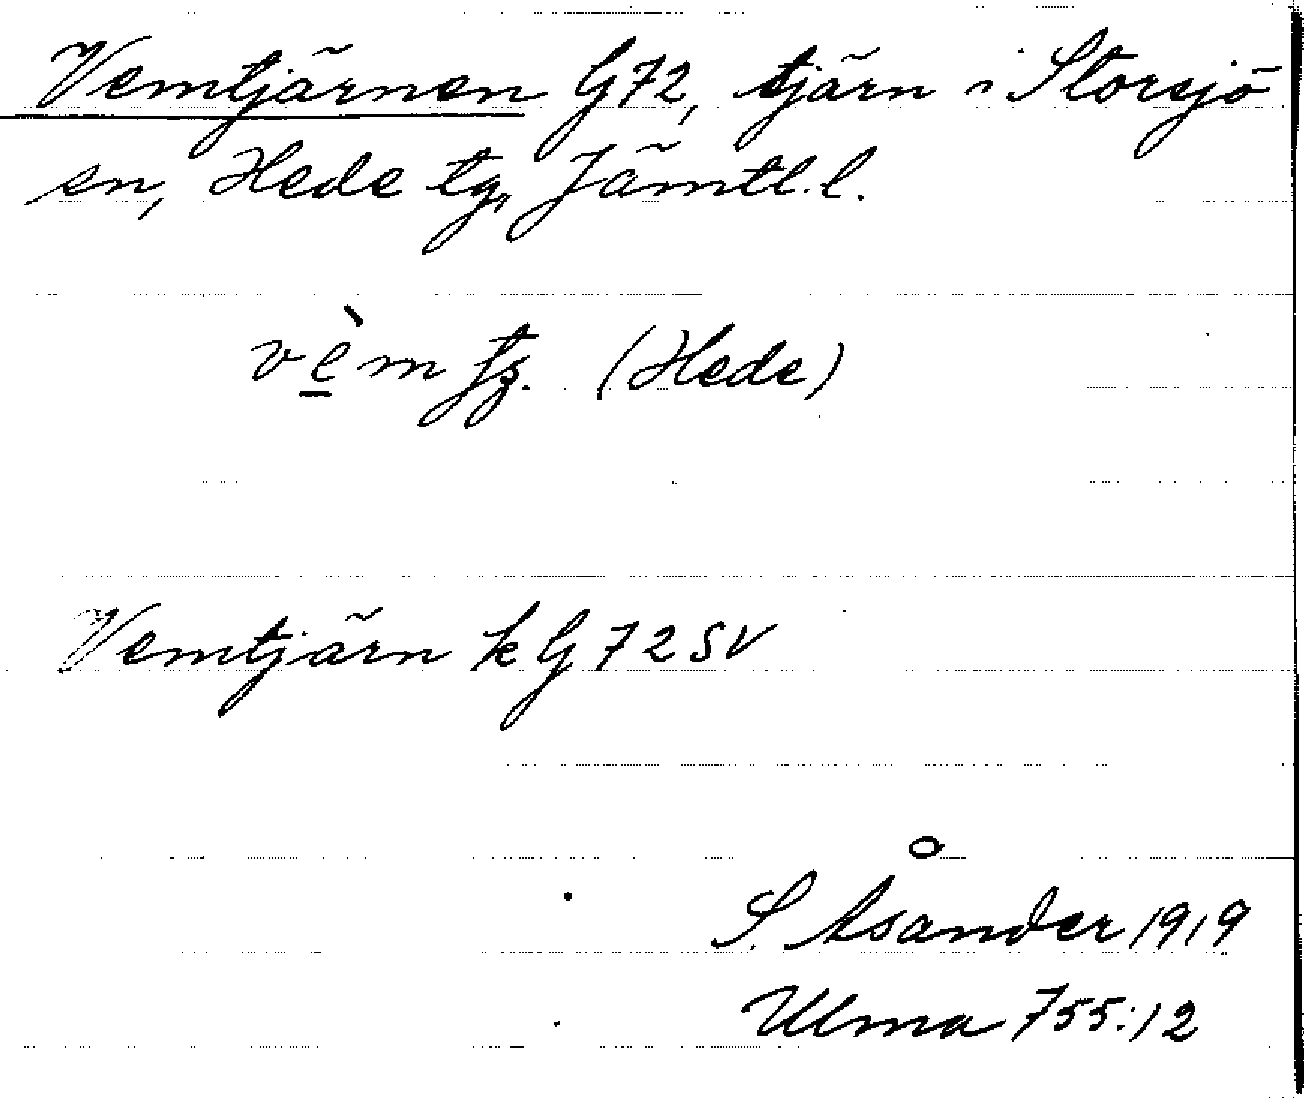 Vemtjärnen G72, tjärn i Storsjö
sn, Hede tg, Jämtl. l.
(Hede)
Vemtjärn k G 72 SV
S. Åsander 1919
Ulma 755:12